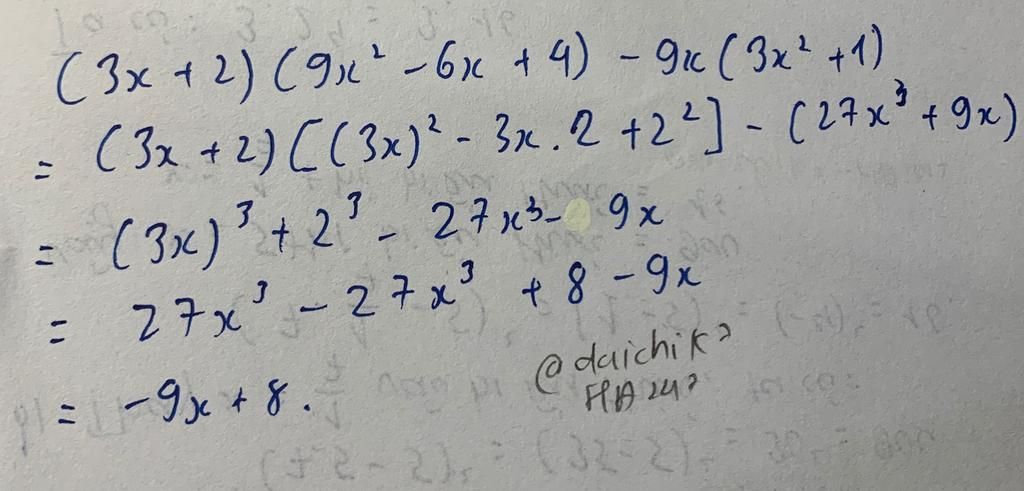 (3x + 2) (9x² - 6x + 4) - 9x (3x² + 1)
= (3x + 2) [(3x)² - 3x . 2 + 2²] - (27x³ + 9x)
= (3x)³ + 2³ - 27x³ - 9x
= 27x³ - 27x³ + 8 - 9x
= -9x + 8.
@daichik?